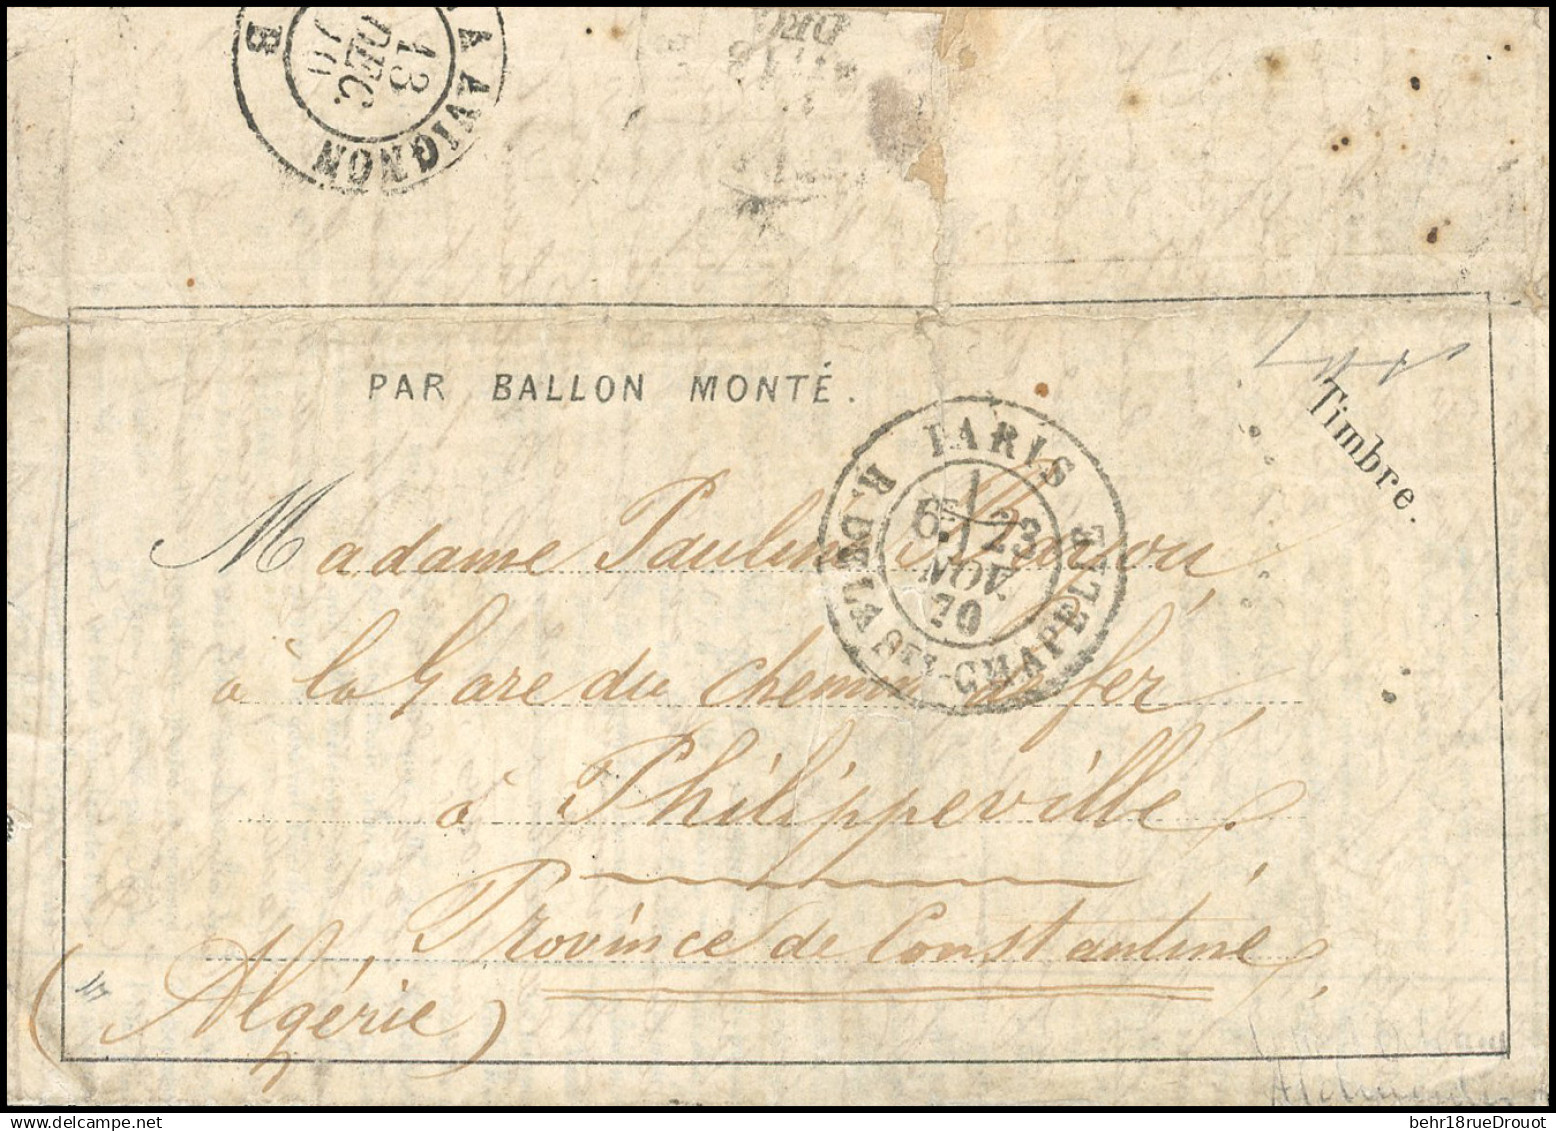 A AVIGNON
13
DEC.
B
DEC
18
PAR BALLON MONTÉ.
Timbre.
PARIS
R. DE LA STE-CHAPELLE
6E 23
NOV.
70
Madame Pauline
à la Gare du Chemin de fer,
à Philippeville.
Province de Constantine,
(Algérie)
behr18rueDrouot